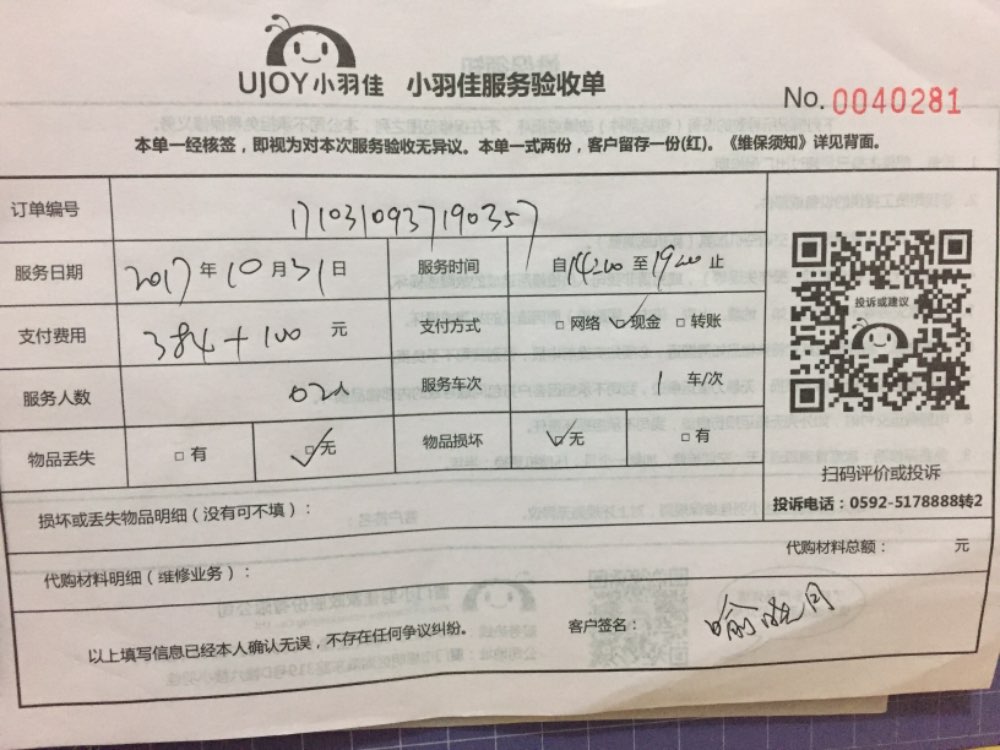 UJOY小羽佳 小羽佳服务验收单
No. 0040281
本单一经核签，即视为对本次服务验收无异议。本单一式两份，客户留存一份(红)。《维保须知》详见背面。
订单编号 1710310937190357
服务日期 2017 年 10 月 31 日 服务时间 自 14:00 至 19:00 止
支付费用 384+100 元 支付方式 □网络 ☑现金 □转账
服务人数 02人 服务车次 1 车/次
物品丢失 □有 ☑无 物品损坏 ☑无 □有
投诉或建议
扫码评价或投诉
投诉电话：0592-5178888转2
损坏或丢失物品明细（没有可不填）：
代购材料明细（维修业务）： 代购材料总额： 元
以上填写信息已经本人确认无误，不存在任何争议纠纷。 客户签名：